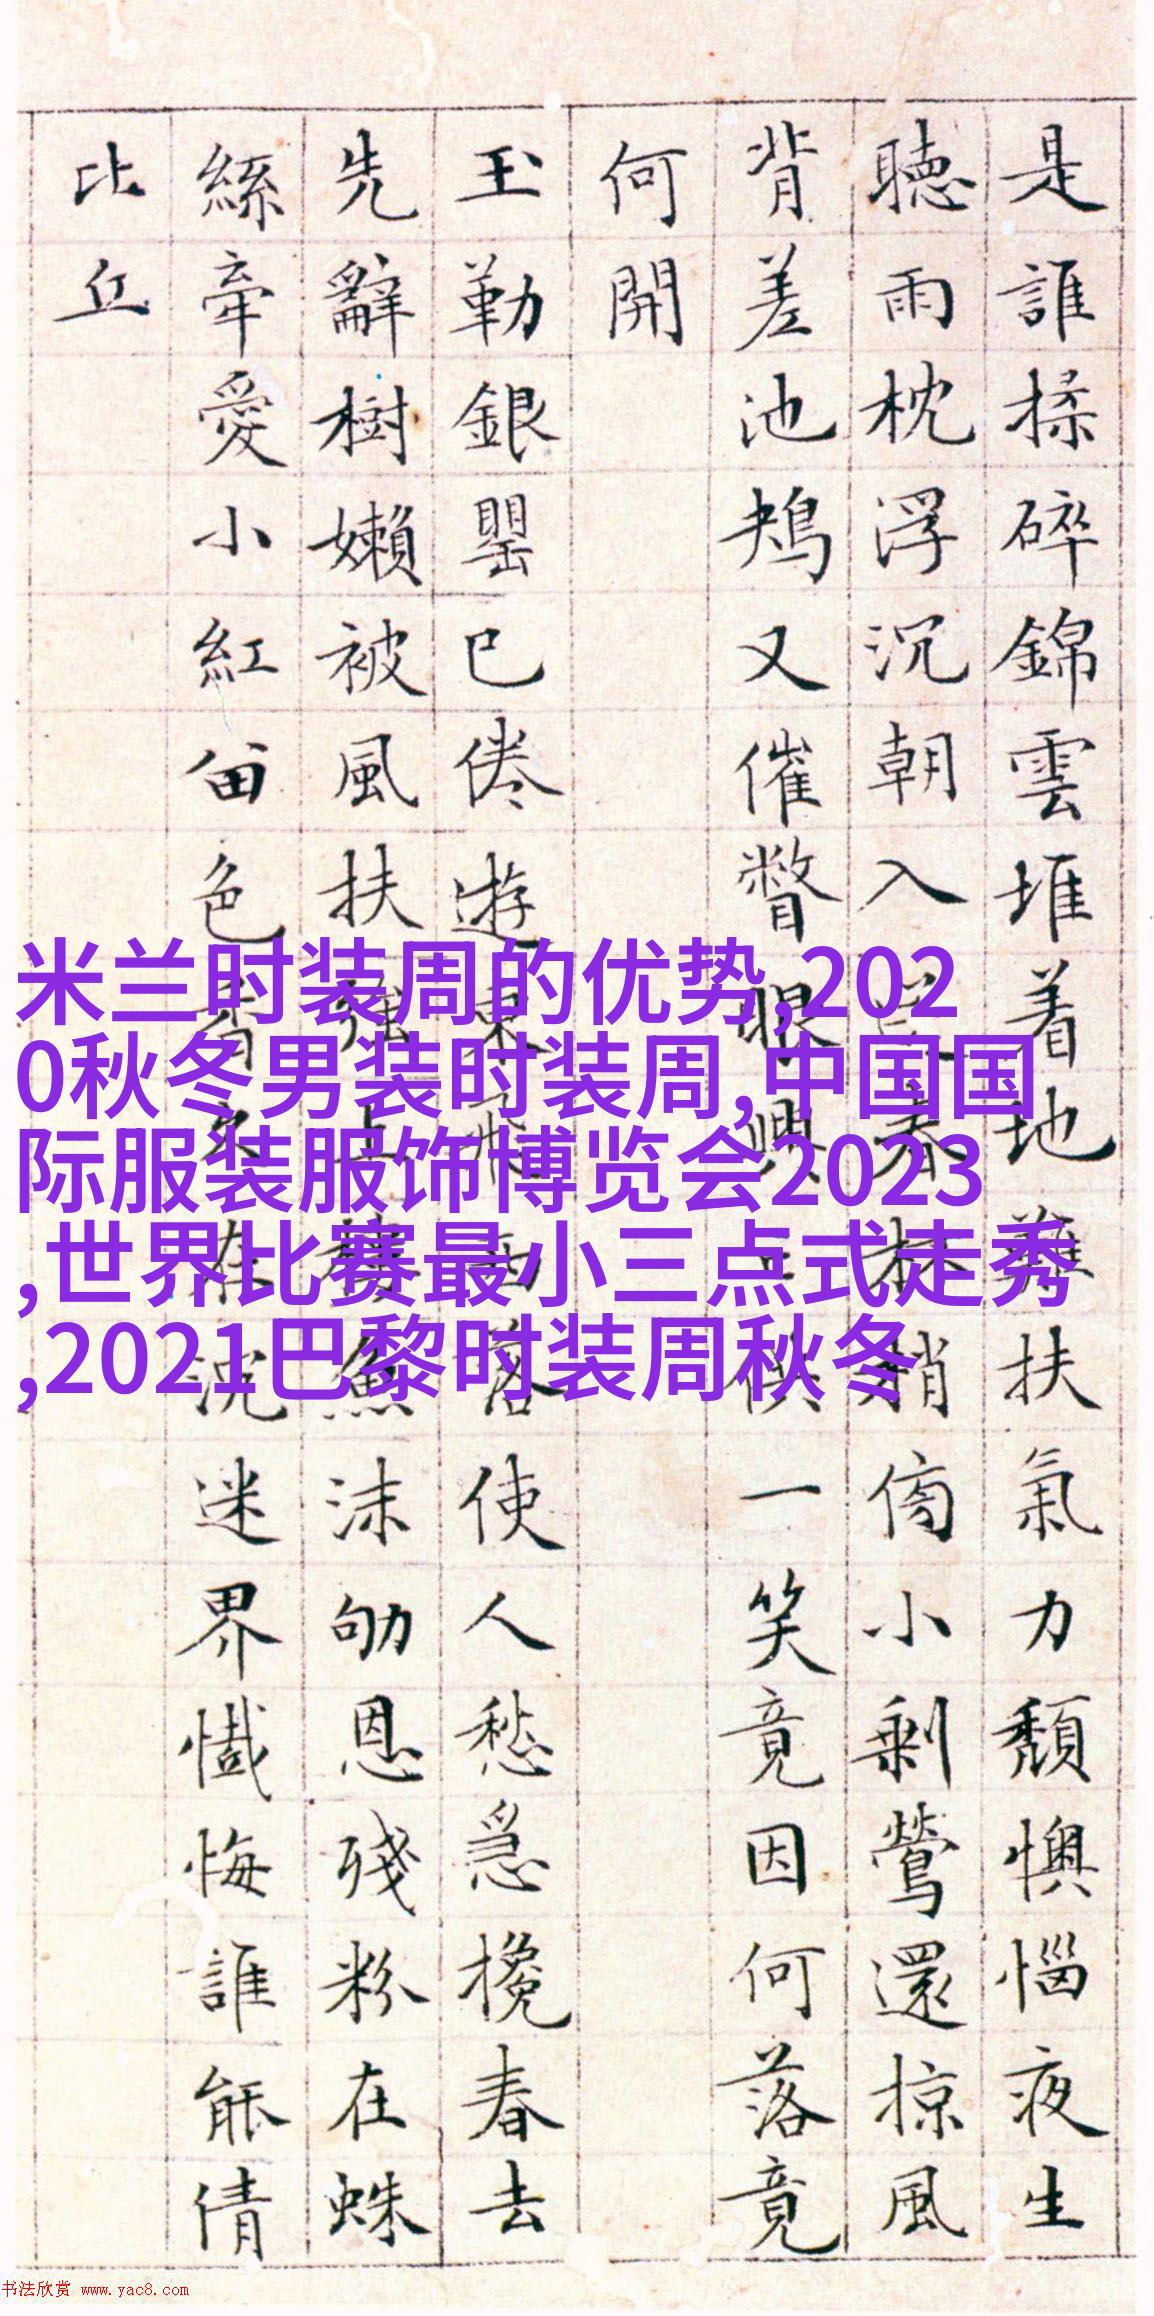 是誰揉碎錦雲堆着地難扶氣力頹懊惱夜生
聽雨枕浮沉朝入春杯梢傍小剩鶯還掠風
背差池鴂又催瞥眼興供一笑竟因何落竟
何開
玉勒銀罌已倦遊東飛西落使人愁急攙春去
先辭樹嬾被風扶強上樓魚沫劬恩殘粉在蛛
絲牽愛小紅留色香久在沉迷界懺悔誰能倩
比丘
米兰时装周的优势,202
0秋冬男装时装周,中国国
际服装服饰博览会2023
,世界比赛最小三点式走秀
,2021巴黎时装周秋冬
书法欣赏 www.yac8.com